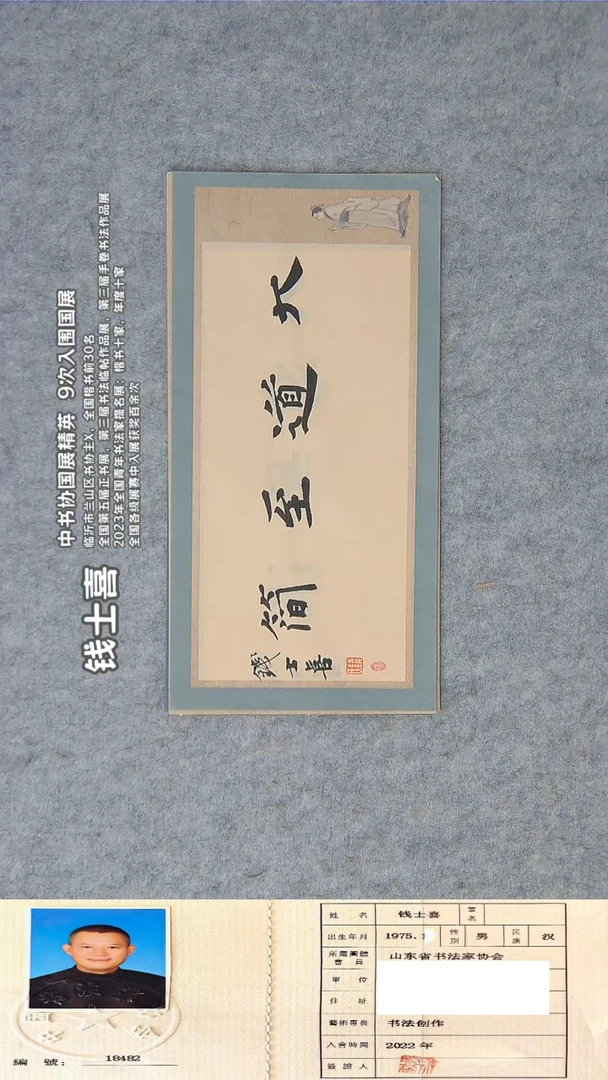 钱士喜
中书协国展精英 9次入围国展
临沂市兰山区书协主X,全国楷书前30名
全国第五届正书展、第三届书法临帖作品展、第三届手卷书法作品展
2023年全国青年书法家提名展:楷书十家,年度十家
全国各级展赛中入展获奖百余次
大道至简
錢士喜
編 號: 18482
姓 名 钱士喜 筆名
出生年月 1975.1 性別 男 民族 汉
所屬團體會員 山东省书法家协会
單 位
住 址
藝術專長 书法创作
入會時間 2022 年
簽證人